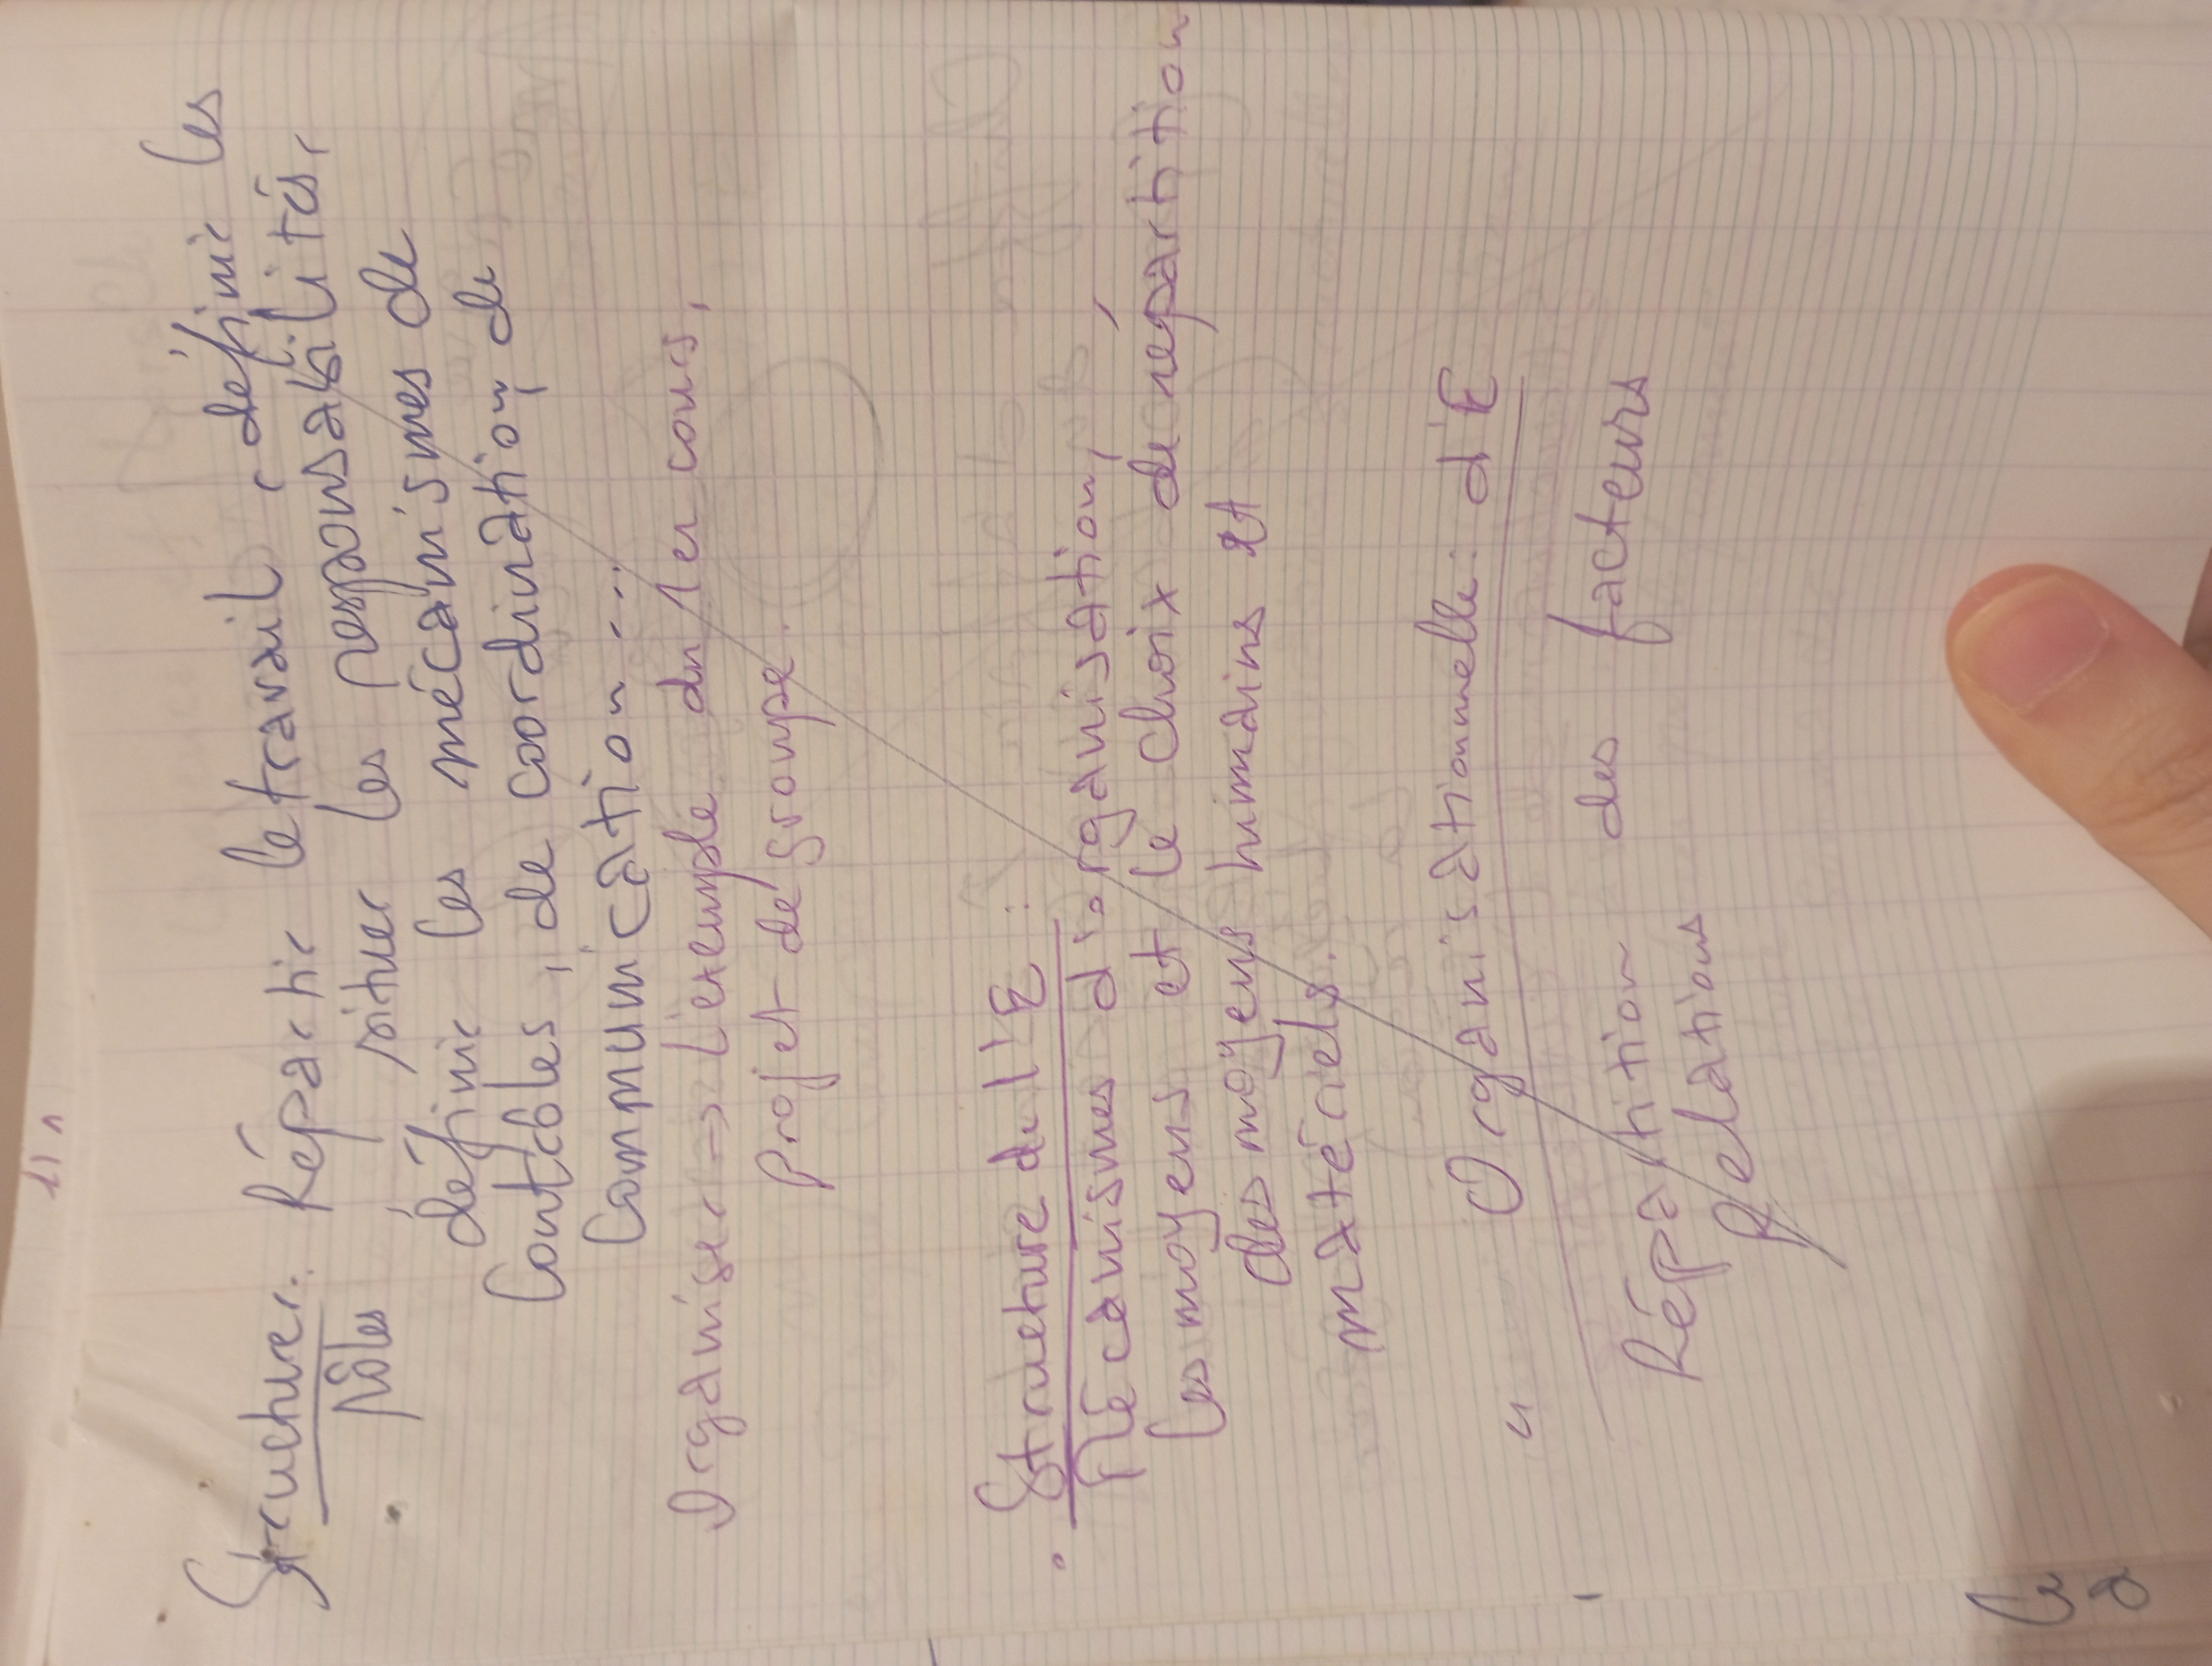 Structurer: Répartir le travail, définir les
rôles, situer les responsabilités,
définir les mécanismes de
Contrôles, de coordination, de
Communication...
Organiser → L'exemple du 1er cours,
projet de groupe.
. Structure de l'E :
Mécanismes d'organisation,
les moyens et le choix de répartition
des moyens humains et
matériels.
" Organisationnelle: d'E
Répartition des facteurs
Relations